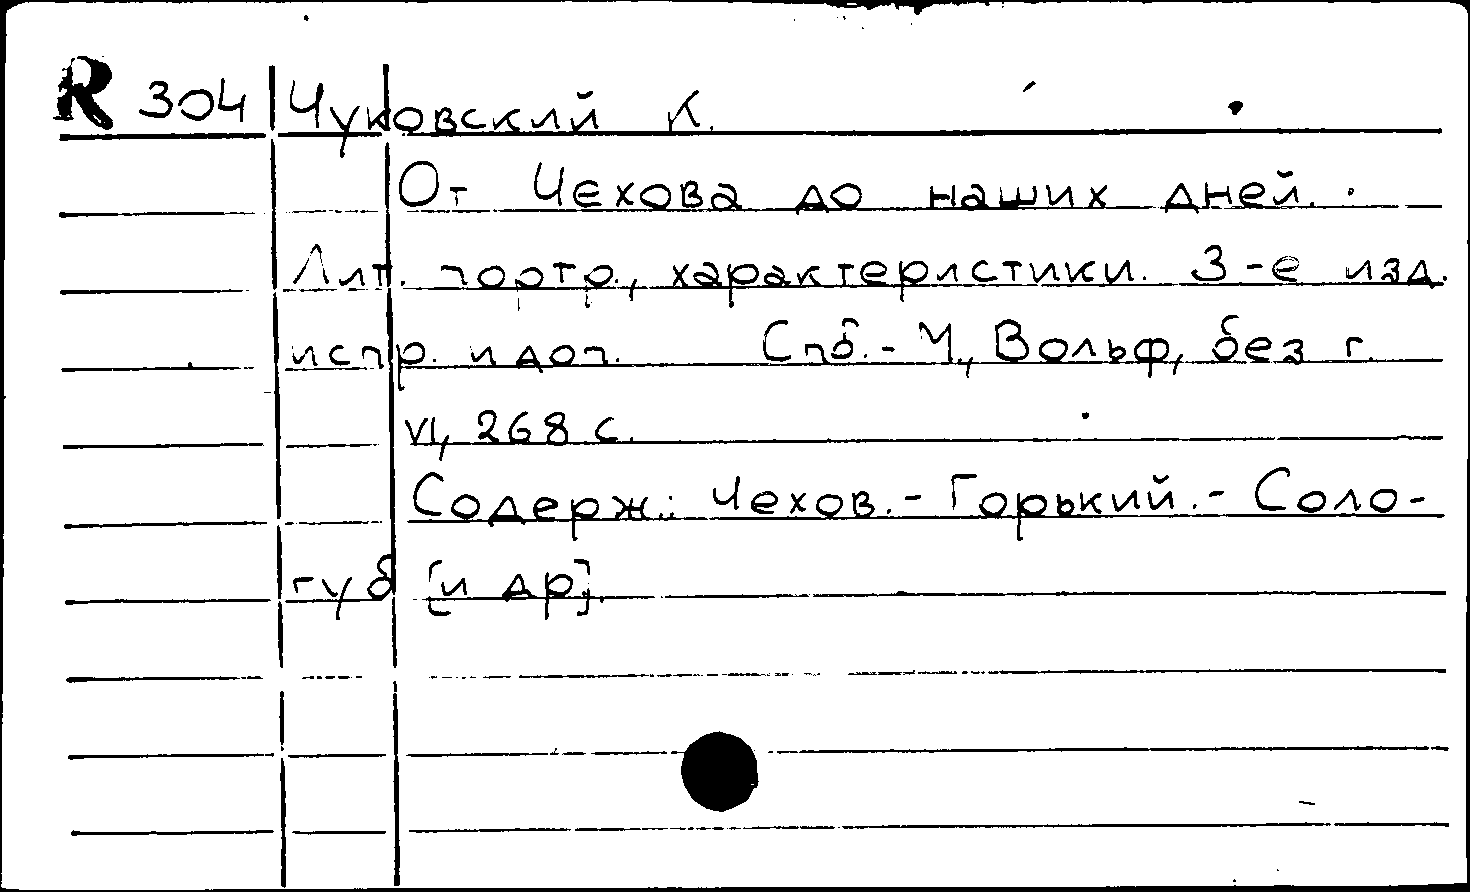 R 304 Чуковский К.
От Чехова до наших дней.
Лит. портр., характеристики. 3-е изд.
испр. и доп. Спб.- М., Вольф, без г.
VI, 268 с.
Содерж.: Чехов.- Горький.- Соло-
губ [и др].